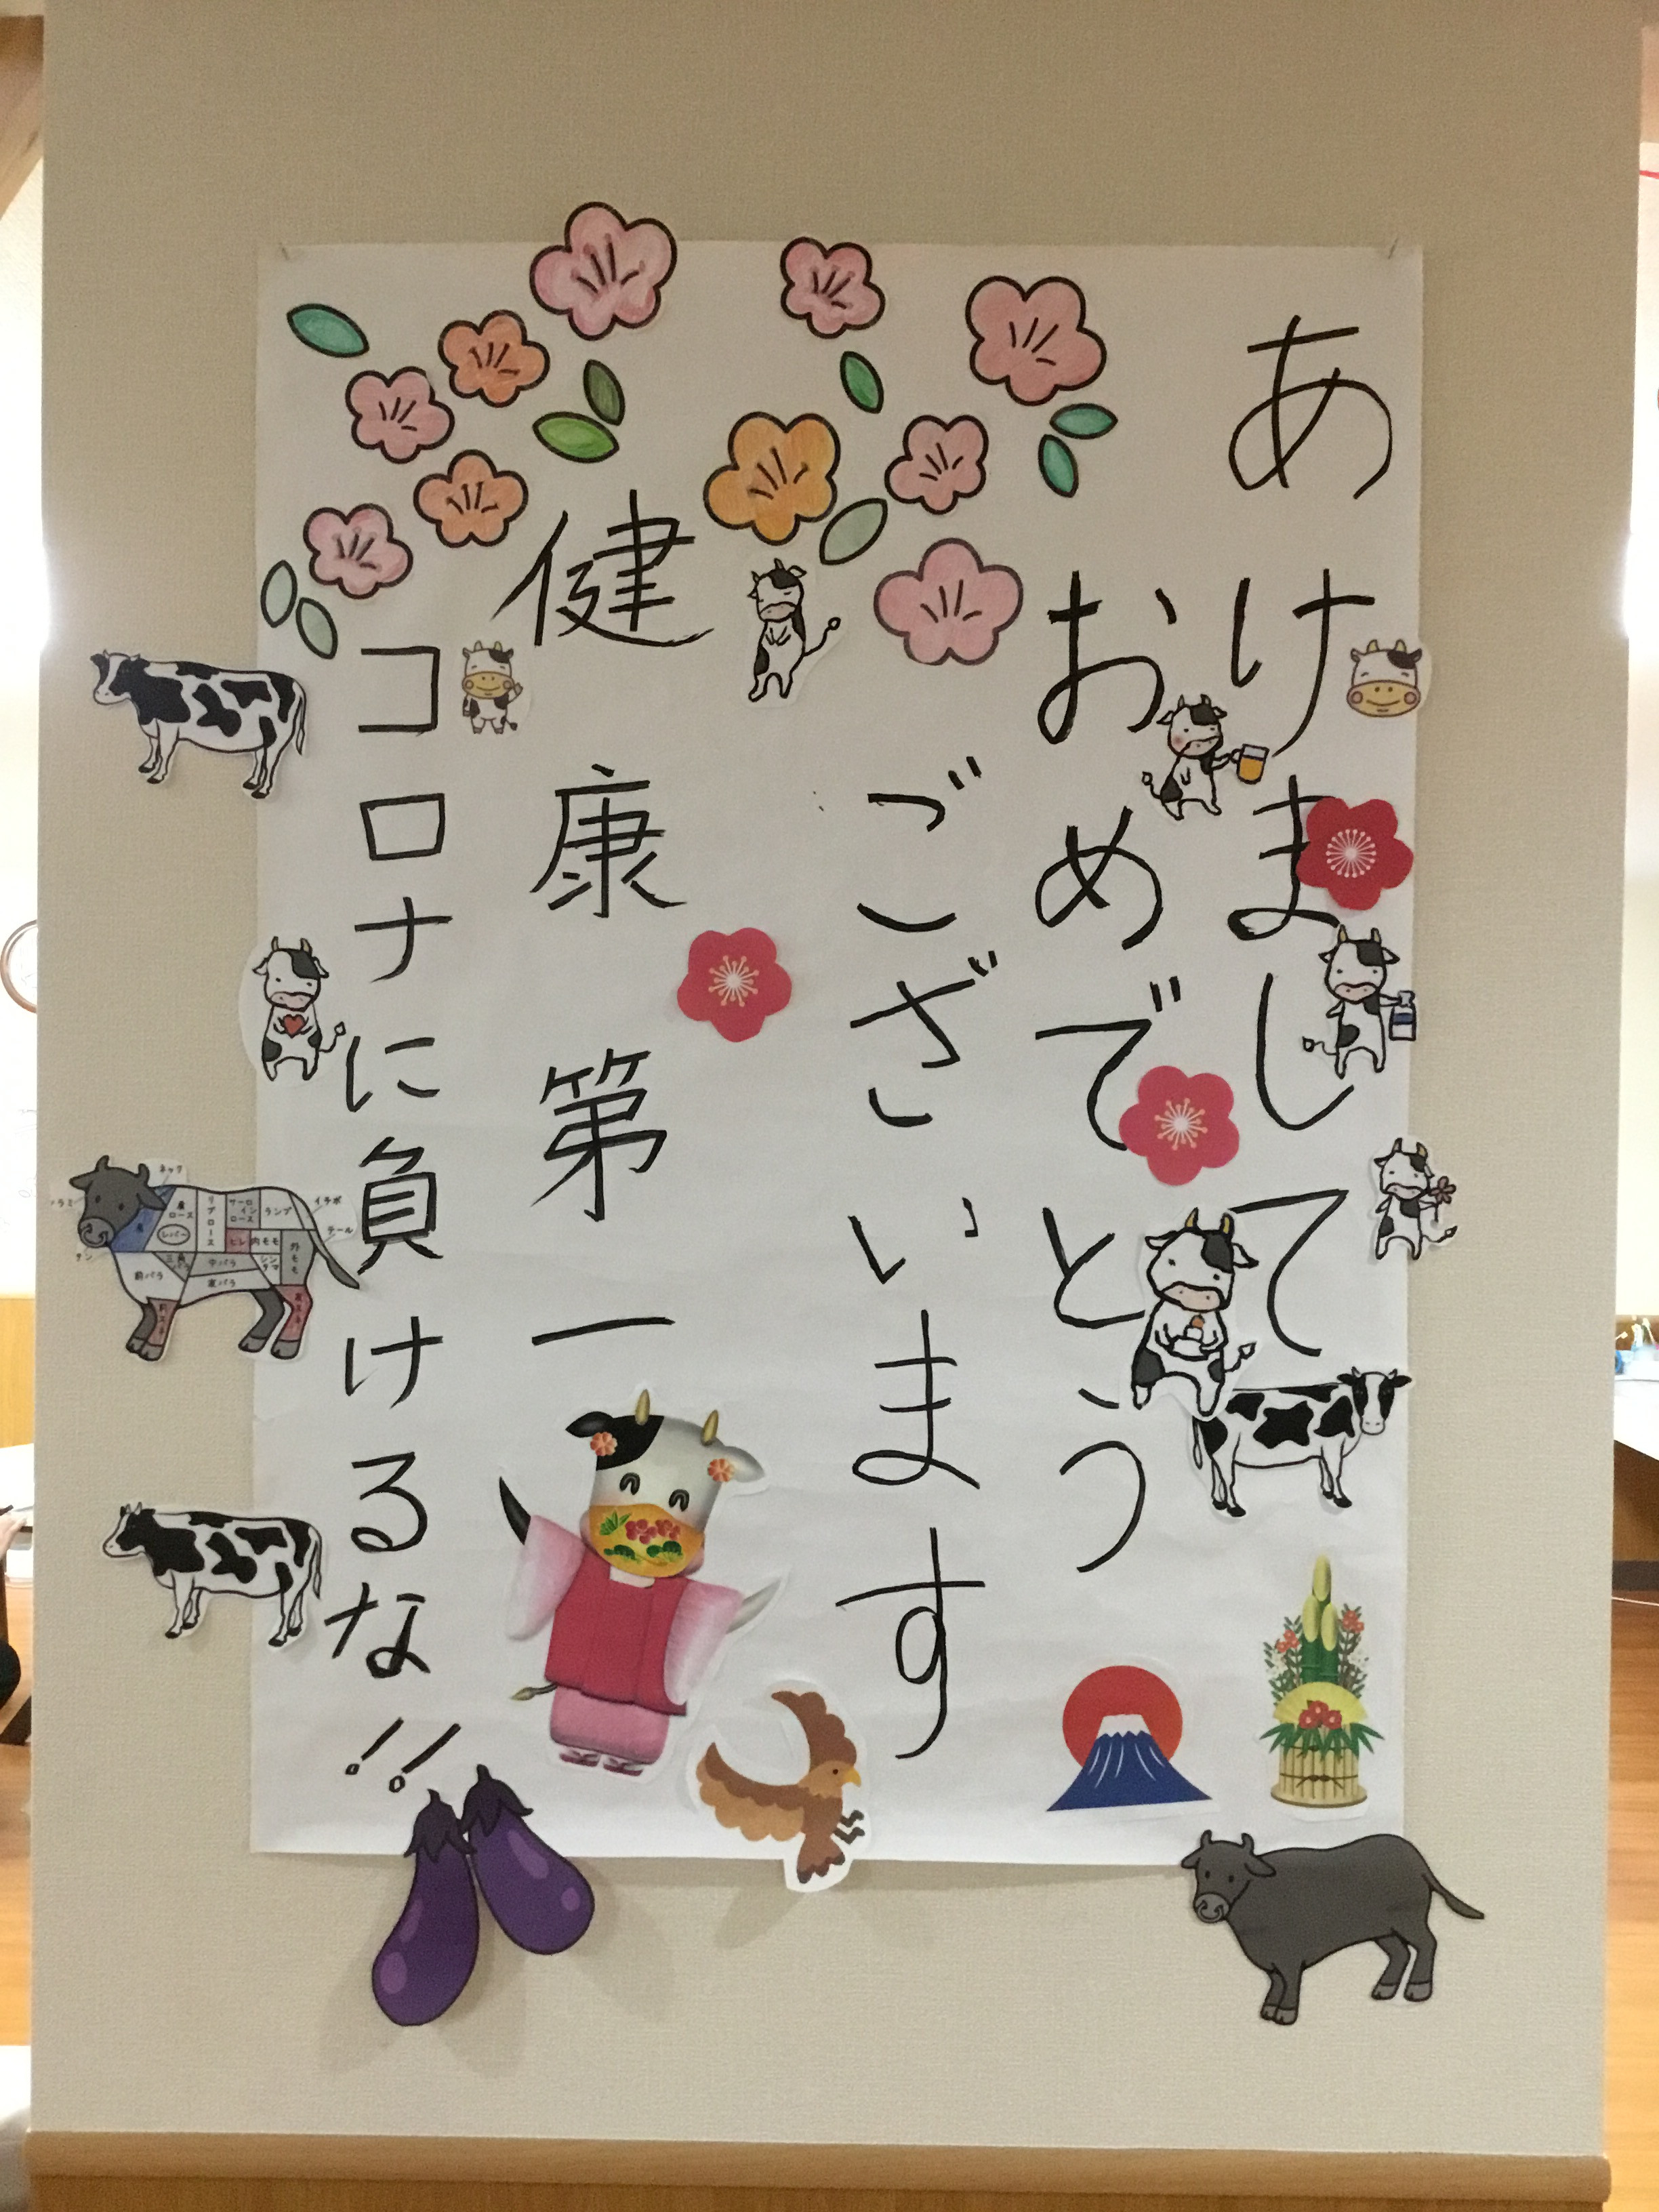 あけまして
おめでとう
ございます
健康第一
コロナに負けるな!!
ネック
肩ロース
リブロース
サーロインロース
ランプ
イチボ
テール
タン
肩
レバー
ヒレ
内モモ
シンタマ
外モモ
前バラ
中バラ